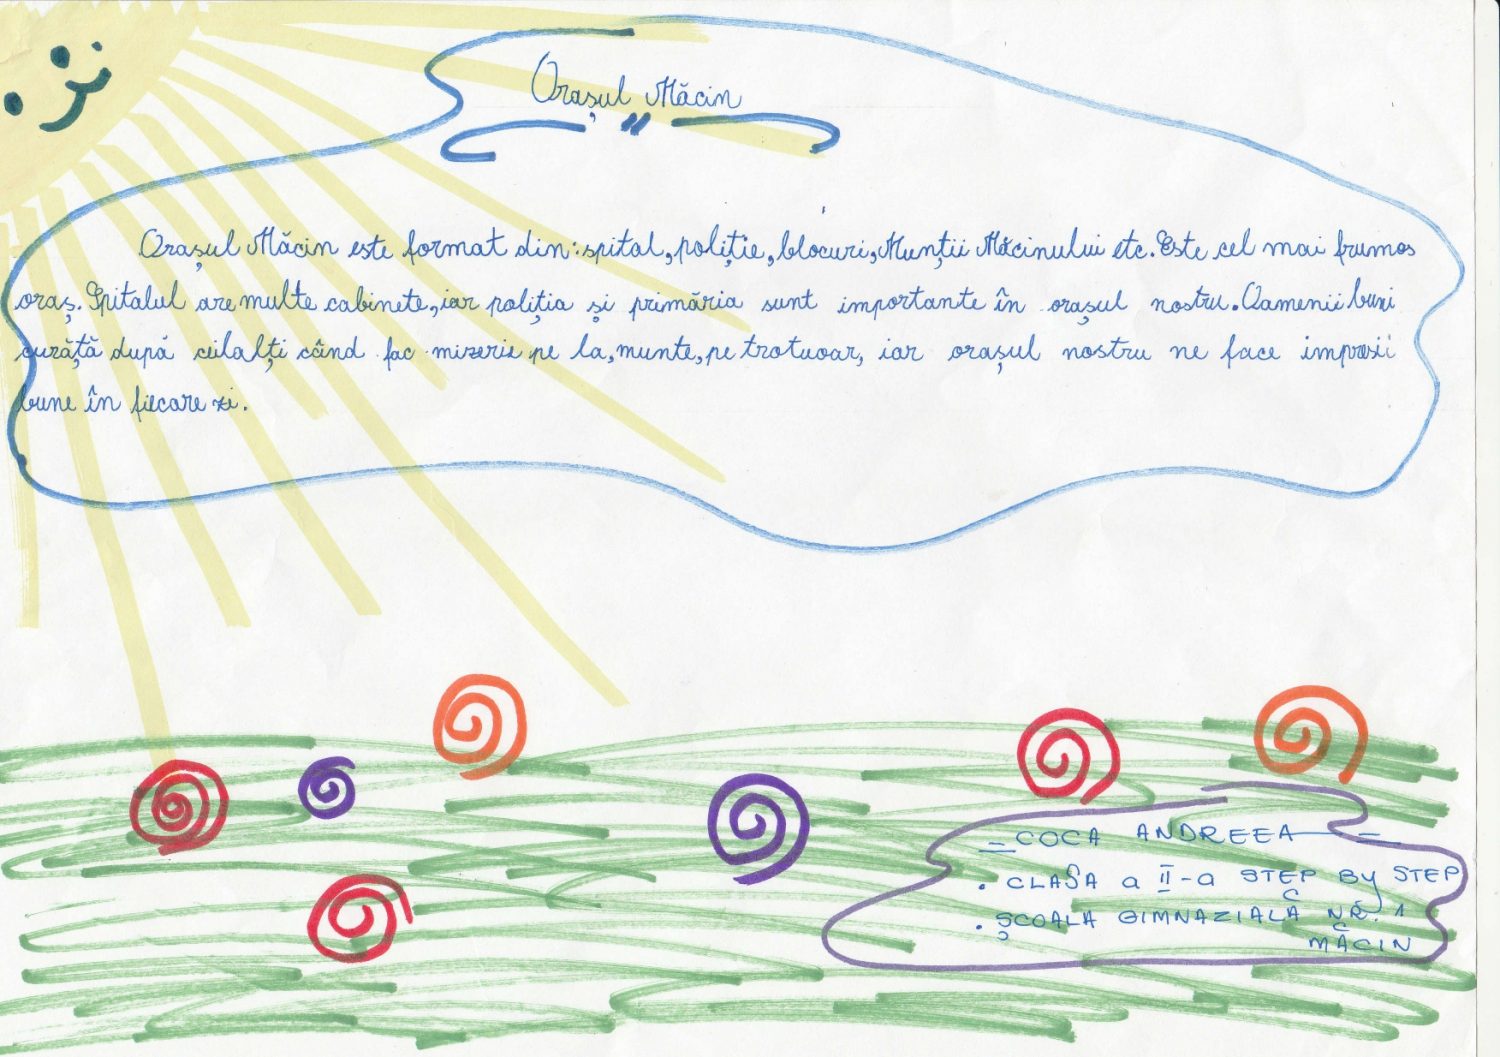 Orașul Măcin
Orașul Măcin este format din: spital, poliție, blocuri, Munții Măcinului etc. Este cel mai frumos
oraș. Spitalul are multe cabinete, iar poliția și primăria sunt importante în orașul nostru. Oamenii buni
curăță după ceilalți când fac mizerie pe la, munte, pe trotuoar, iar orașul nostru ne face impresii
bune în fiecare zi.
COCA ANDREEA
. CLASA a II-a STEP BY STEP
. ȘCOALA GIMNAZIALĂ NR. 1
MĂCIN